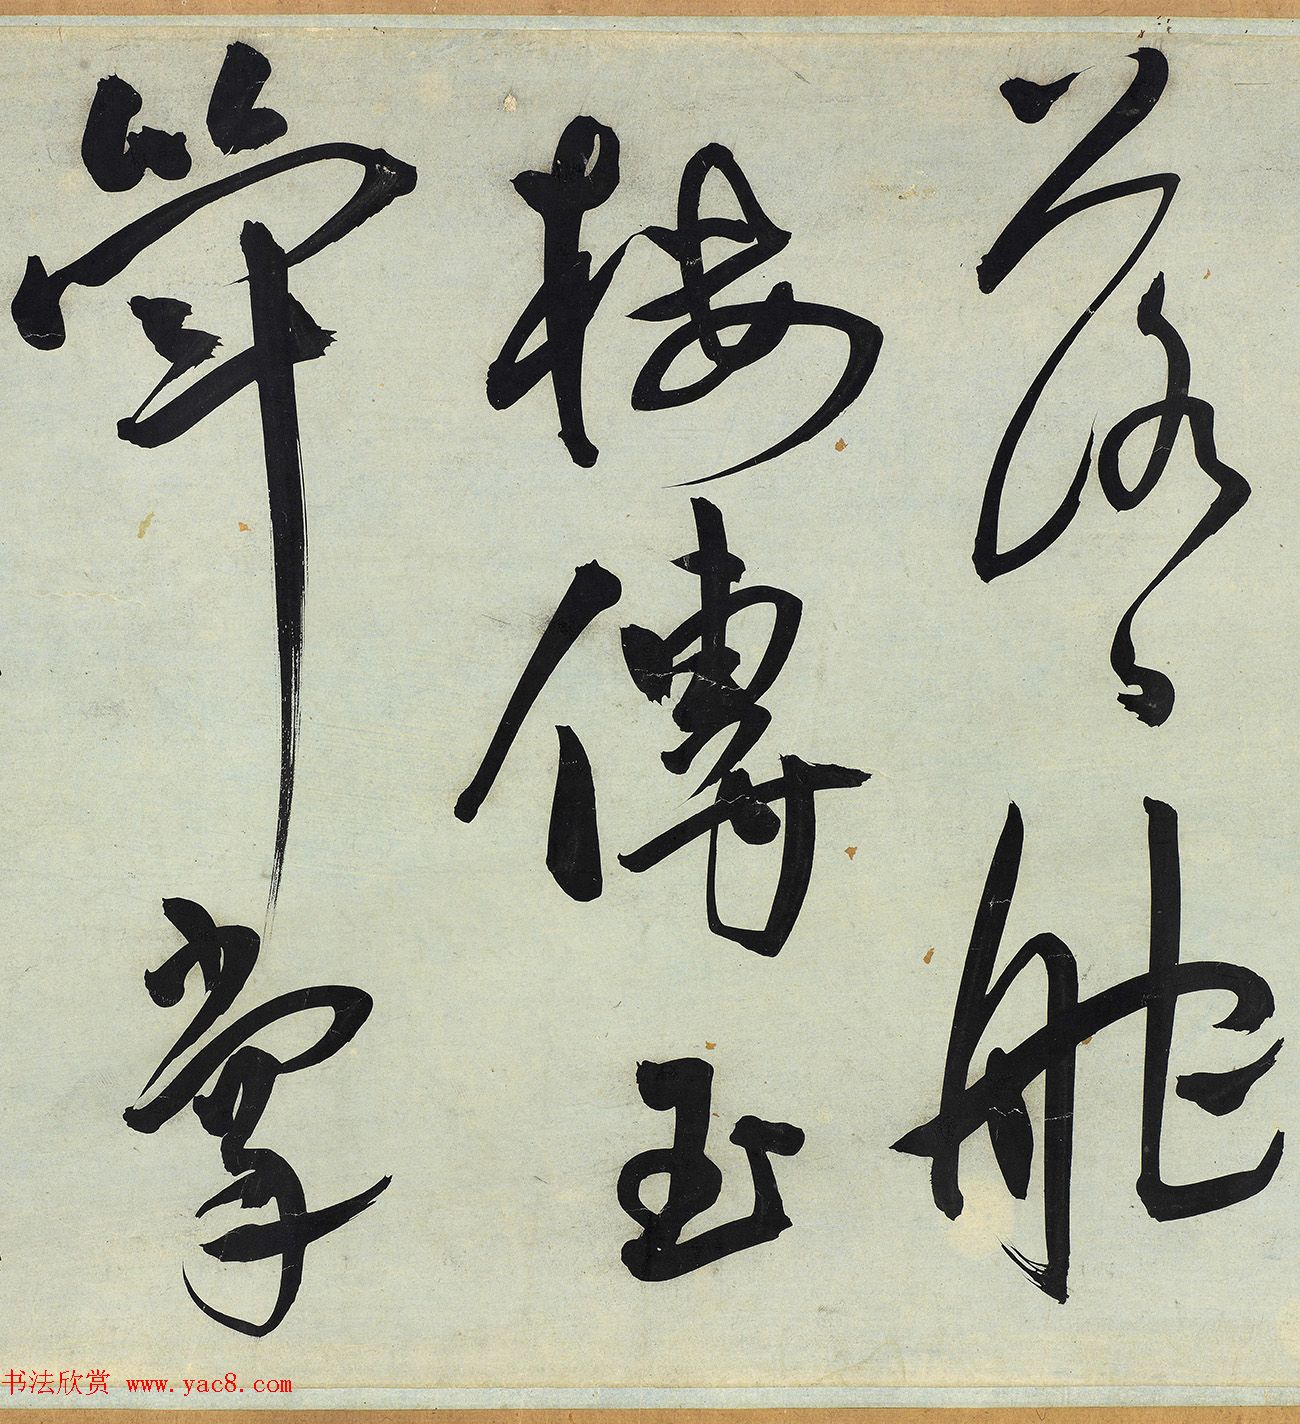 落舵
樓傳玉
斝掌
书法欣赏 www.yac8.com